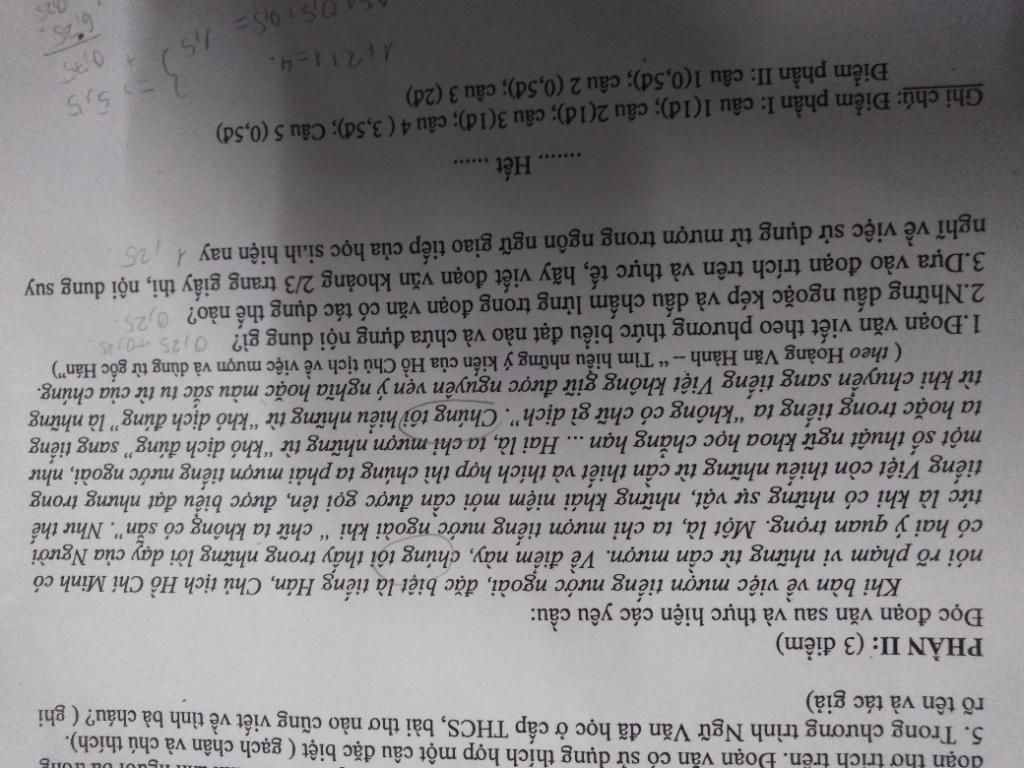 đoạn thơ trích trên. Đoạn văn có sử dụng thích hợp một câu đặc biệt ( gạch chân và chú thích).
5. Trong chương trình Ngữ Văn đã học ở cấp THCS, bài thơ nào cũng viết về tình bà cháu? ( ghi
rõ tên và tác giả)
PHẦN II: (3 điểm)
Đọc đoạn văn sau và thực hiện các yêu cầu:
Khi bàn về việc mượn tiếng nước ngoài, đặc biệt là tiếng Hán, Chủ tịch Hồ Chí Minh có
nói rõ phạm vi những từ cần mượn. Về điểm này, chúng tôi thấy trong những lời dạy của Người
có hai ý quan trọng. Một là, ta chỉ mượn tiếng nước ngoài khi “ chữ ta không có sẵn”. Như thế
tức là khi có những sự vật, những khái niệm mới cần được gọi tên, được biểu đạt nhưng trong
tiếng Việt còn thiếu những từ cần thiết và thích hợp thì chúng ta phải mượn tiếng nước ngoài, như
một số thuật ngữ khoa học chẳng hạn ... Hai là, ta chỉ mượn những từ “khó dịch đúng” sang tiếng
ta hoặc trong tiếng ta “không có chữ gì dịch”. Chúng tôi hiểu những từ “khó dịch đúng” là những
từ khi chuyển sang tiếng Việt không giữ được nguyên vẹn ý nghĩa hoặc màu sắc tu từ của chúng.
( theo Hoàng Văn Hành – “ Tìm hiểu những ý kiến của Hồ Chủ tịch về việc mượn và dùng từ gốc Hán”)
1.Đoạn văn viết theo phương thức biểu đạt nào và chứa đựng nội dung gì? 0,25 +0,25
2.Những dấu ngoặc kép và dấu chấm lửng trong đoạn văn có tác dụng thế nào? 0,25.
3.Dựa vào đoạn trích trên và thực tế, hãy viết đoạn văn khoảng 2/3 trang giấy thi, nội dung suy
nghĩ về việc sử dụng từ mượn trong ngôn ngữ giao tiếp của học si.nh hiện nay 1,25.
....... Hết ......
Ghi chú: Điểm phần I: câu 1(1đ); câu 2(1đ); câu 3(1đ); câu 4 ( 3,5đ); Câu 5 (0,5đ)
Điểm phần II: câu 1(0,5đ); câu 2 (0,5đ); câu 3 (2đ)